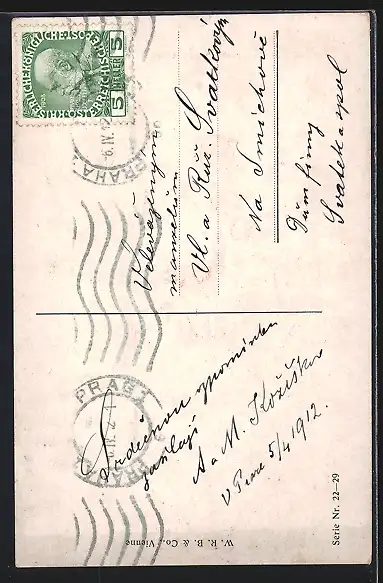 KAISERLICHE KÖNIGLICHE ÖSTERREICHISCHE POST
5 HELLER 5
PRAHA
PRAG 1
PRAHA
Srdečnou vzpomínku
zasílají
A a M. Kožíškov
V Praze 5/4 1912.
Velevážených
manželům
Vl. a Růž. Svatkovým
Na Smíchově
Dům firmy
Svatek a spol
W. R. B. & Co., Vienne
Serie Nr. 22—29